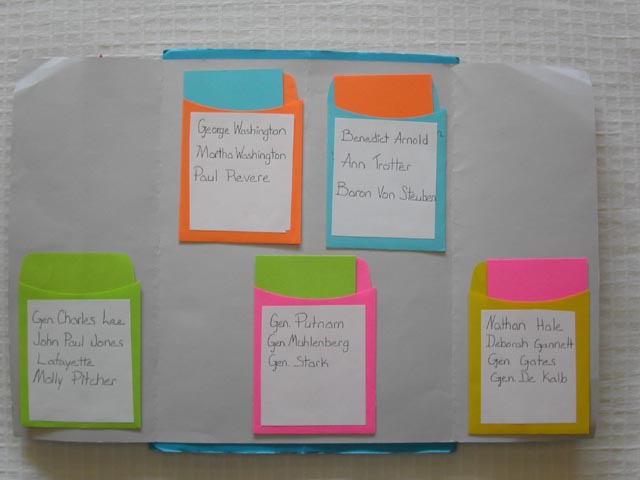 George Washington
Martha Washington
Paul Revere
Benedict Arnold
Ann Trotter
Baron Von Steuben
Gen. Charles Lee
John Paul Jones
Lafayette
Molly Pitcher
Gen. Putnam
Gen Muhlenberg
Gen. Stark
Nathan Hale
Deborah Gannett
Gen Gates
Gen. De Kalb